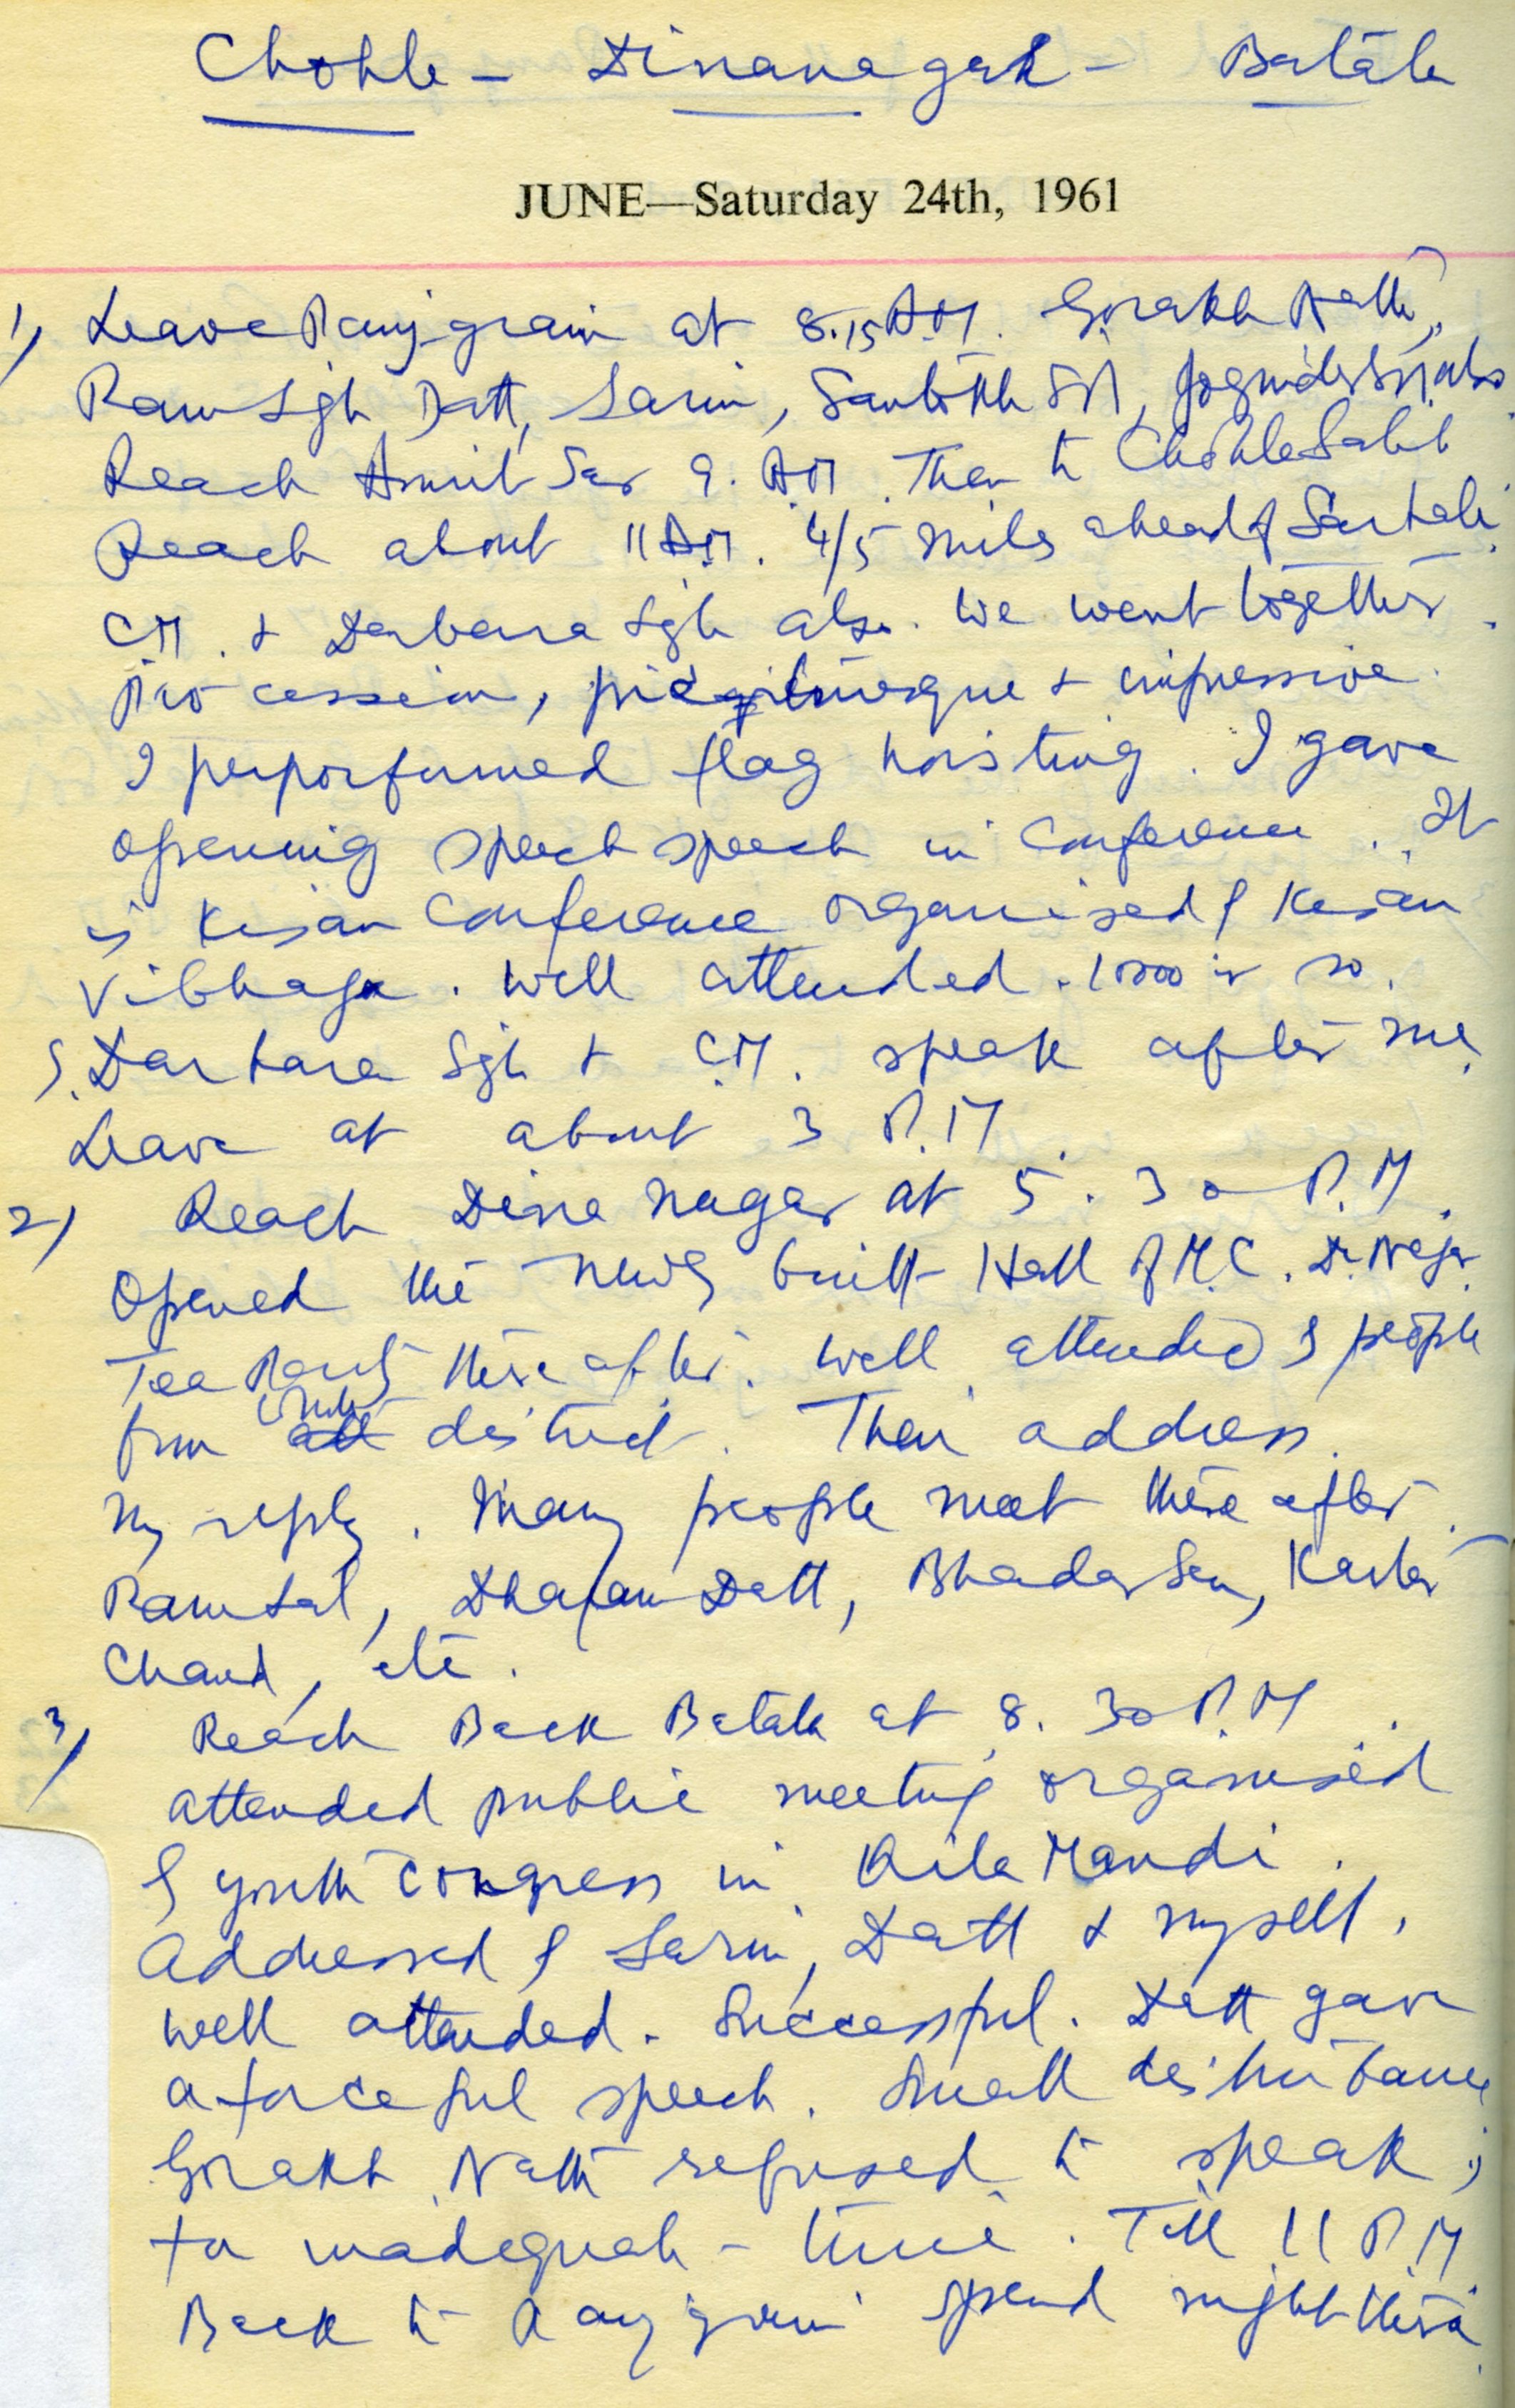 Chohle - Dinanagar - Batala
JUNE—Saturday 24th, 1961
1) Leave at 8.15 A.M. Gorakh Nath,
Ram Sgh Datt, Sarin, Santokh
Reach Amrit Sar 9. A.M. Then to Chohle Sahib
Reach about 11 A.M. 4/5 miles ahead of Sarhali
C.M. & Darbara Sgh also. We went together.
Procession, & impressive.
I flag hoisting. I gave
openning speech speech in Conference. It
is Kisan Conference organised by Kisan
Vibhaga. Well attended. 10000 or so.
S. Darbara Sgh & C.M. speak after me.
Leave at about 3 P.M.
2) Reach Dina Nagar at 5.30 P.M.
Opened the newly built Hall of M.C. D. Nagar.
Tea Party there after. Well attended by people
from whole district. Then address.
My reply. Many people meet there after.
Ram Lal, Datt, Bhadar Sen, Kartar
Chand, etc.
3) Reach Back Batala at 8.30 P.M.
attended public meeting organised
by youth congress in Qila Mandi.
Addressed by Sarin, Datt & myself.
Well attended. Successful. Datt gave
a forceful speech. Small disturbance
Gorakh Nath refused to speak;
for inadequate - time. Till 11 P.M
Back to spend night there.